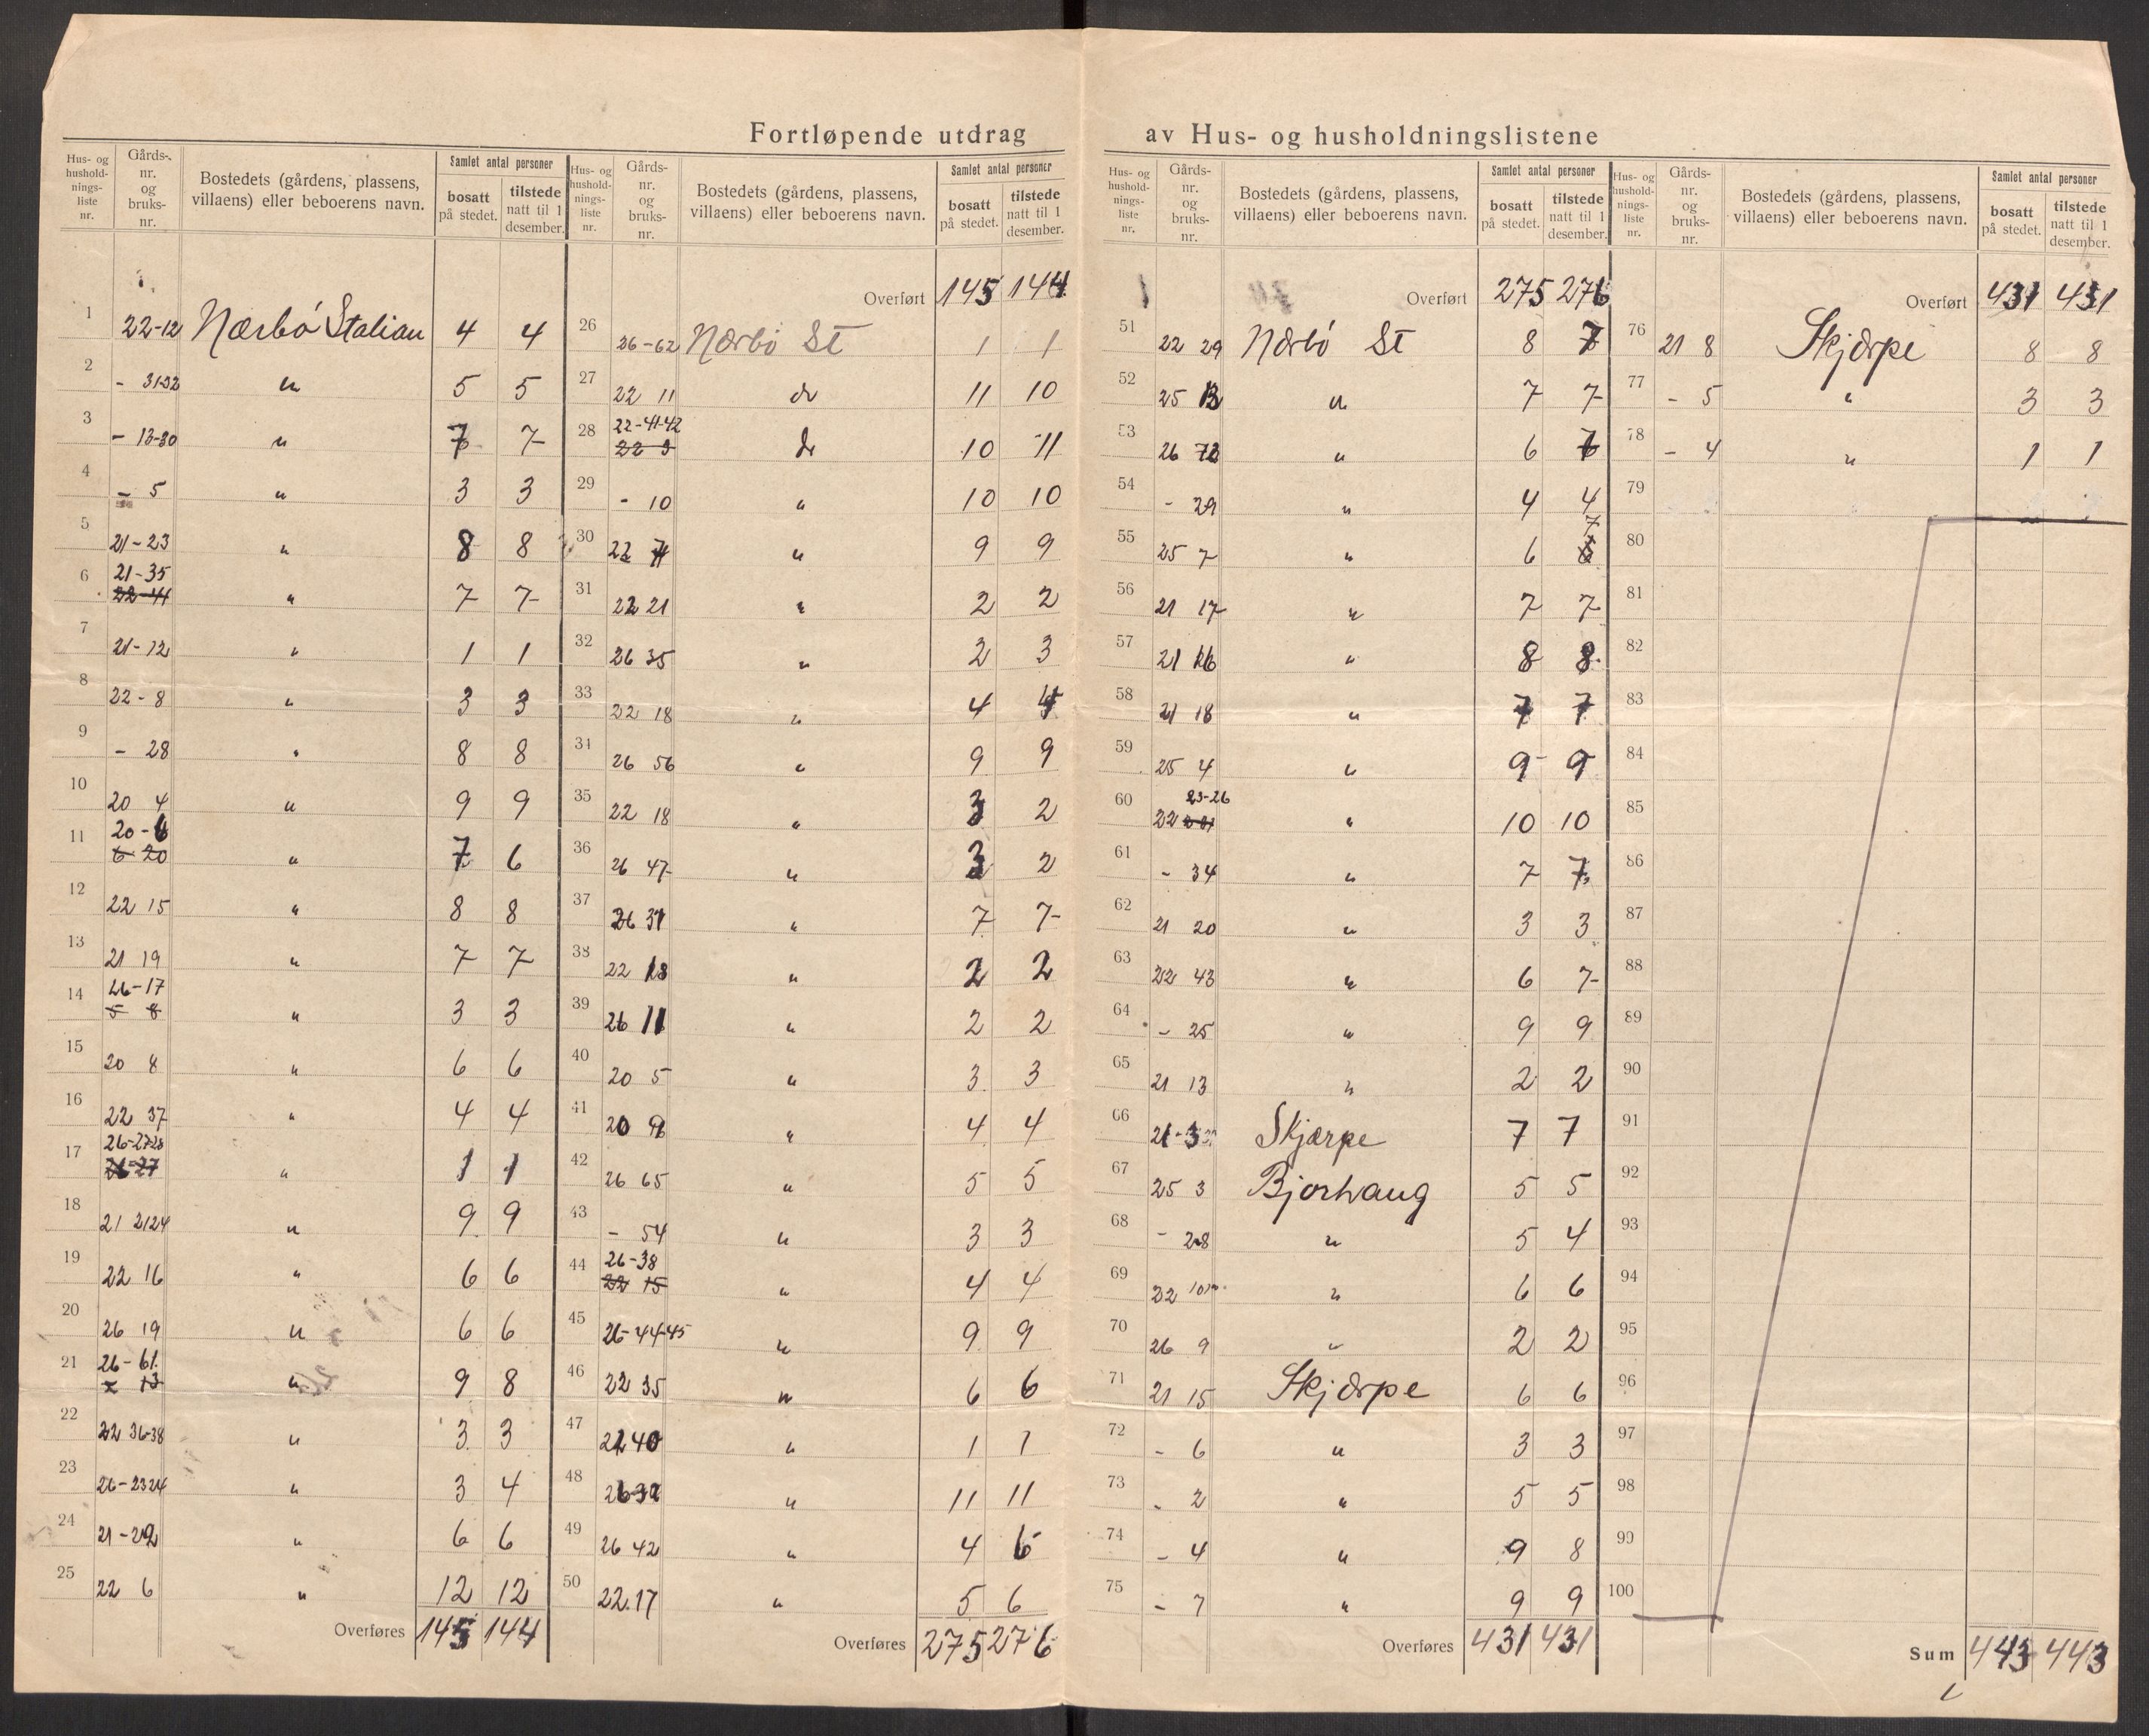 Fortløpende utdrag av Hus- og husholdningslistene
Hus- og husholdnings-liste nr. Gårds-nr. og bruks-nr. Bostedets (gårdens, plassens, villaens) eller beboerens navn. Samlet antal personer bosatt på stedet. tilstede natt til 1 desember.
1 22-12 Nærbø Station 4 4
2 - 31-32 " 5 5
3 - 13-30 " 7 7
4 - 5 " 3 3
5 21-23 " 8 8
6 21-35 22-41 " 7 7
7 21-12 " 1 1
8 22-8 " 3 3
9 - 28 " 8 8
10 20 4 " 9 9
11 20-6 6 20 " 7 6
12 22 15 " 8 8
13 21 19 " 7 7
14 26-17 5 8 " 3 3
15 20 8 " 6 6
16 22 37 " 4 4
17 26-27-28 26-27 " 1 1
18 21 2124 " 9 9
19 22 16 " 6 6
20 26 19 " 6 6
21 26-61 13 " 9 8
22 22 36-38 " 3 3
23 26-2324 " 3 4
24 21-22 " 6 6
25 22 6 " 12 12
Overføres 145 144
Hus- og husholdnings-liste nr. Gårds-nr. og bruks-nr. Bostedets (gårdens, plassens, villaens) eller beboerens navn. Samlet antal personer bosatt på stedet. tilstede natt til 1 desember.
Overført 145 144
26 26-62 Nærbø St 1 1
27 22 11 do 11 10
28 22-41-42 22 9 do 10 11
29 - 10 " 10 10
30 22 " 9 9
31 22 21 " 2 2
32 26 35 " 2 3
33 22 18 " 4 4
34 26 56 " 9 9
35 22 18 " 3 2
36 26 47 " 3 2
37 26 31 " 7 7
38 22 18 " 2 2
39 26 11 " 2 2
40 20 5 " 3 3
41 20 9 " 4 4
42 26 65 " 5 5
43 - 54 " 3 3
44 26-38 22 15 " 4 4
45 26-44-45 " 9 9
46 22 35 " 6 6
47 22 40 " 1 1
48 26 32 " 11 11
49 26 42 " 4 6
50 22.17 " 5 6
Overføres 275 276
Hus- og husholdnings-liste nr. Gårds-nr. og bruks-nr. Bostedets (gårdens, plassens, villaens) eller beboerens navn. Samlet antal personer bosatt på stedet. tilstede natt til 1 desember.
Overført 275 276
51 22 29 Nærbø St 8 7
52 25 13 " 7 7
53 26 72 " 6 7
54 - 29 " 4 4
55 25 7 " 6 7
56 21 17 " 7 7
57 21 16 " 8 8
58 21 18 " 7 7
59 25 4 " 9 9
60 22 23-26 " 10 10
61 - 34 " 7 7
62 21 20 " 3 3
63 22 43 " 6 7
64 - 25 " 9 9
65 21 13 " 2 2
66 21-3 Skjærpe 7 7
67 25 3 Bjorhaug 5 5
68 - 28 " 5 4
69 22 " 6 6
70 26 9 " 2 2
71 21 15 Skjærpe 6 6
72 - 6 " 3 3
73 - 2 " 5 5
74 - 4 " 9 8
75 - 7 " 9 9
Overføres 431 431
Hus- og husholdnings-liste nr. Gårds-nr. og bruks-nr. Bostedets (gårdens, plassens, villaens) eller beboerens navn. Samlet antal personer bosatt på stedet. tilstede natt til 1 desember.
Overført 431 431
76 21 8 Skjærpe 8 8
77 - 5 " 3 3
78 - 4 " 1 1
79
80
81
82
83
84
85
86
87
88
89
90
91
92
93
94
95
96
97
98
99
100
Sum 443 443